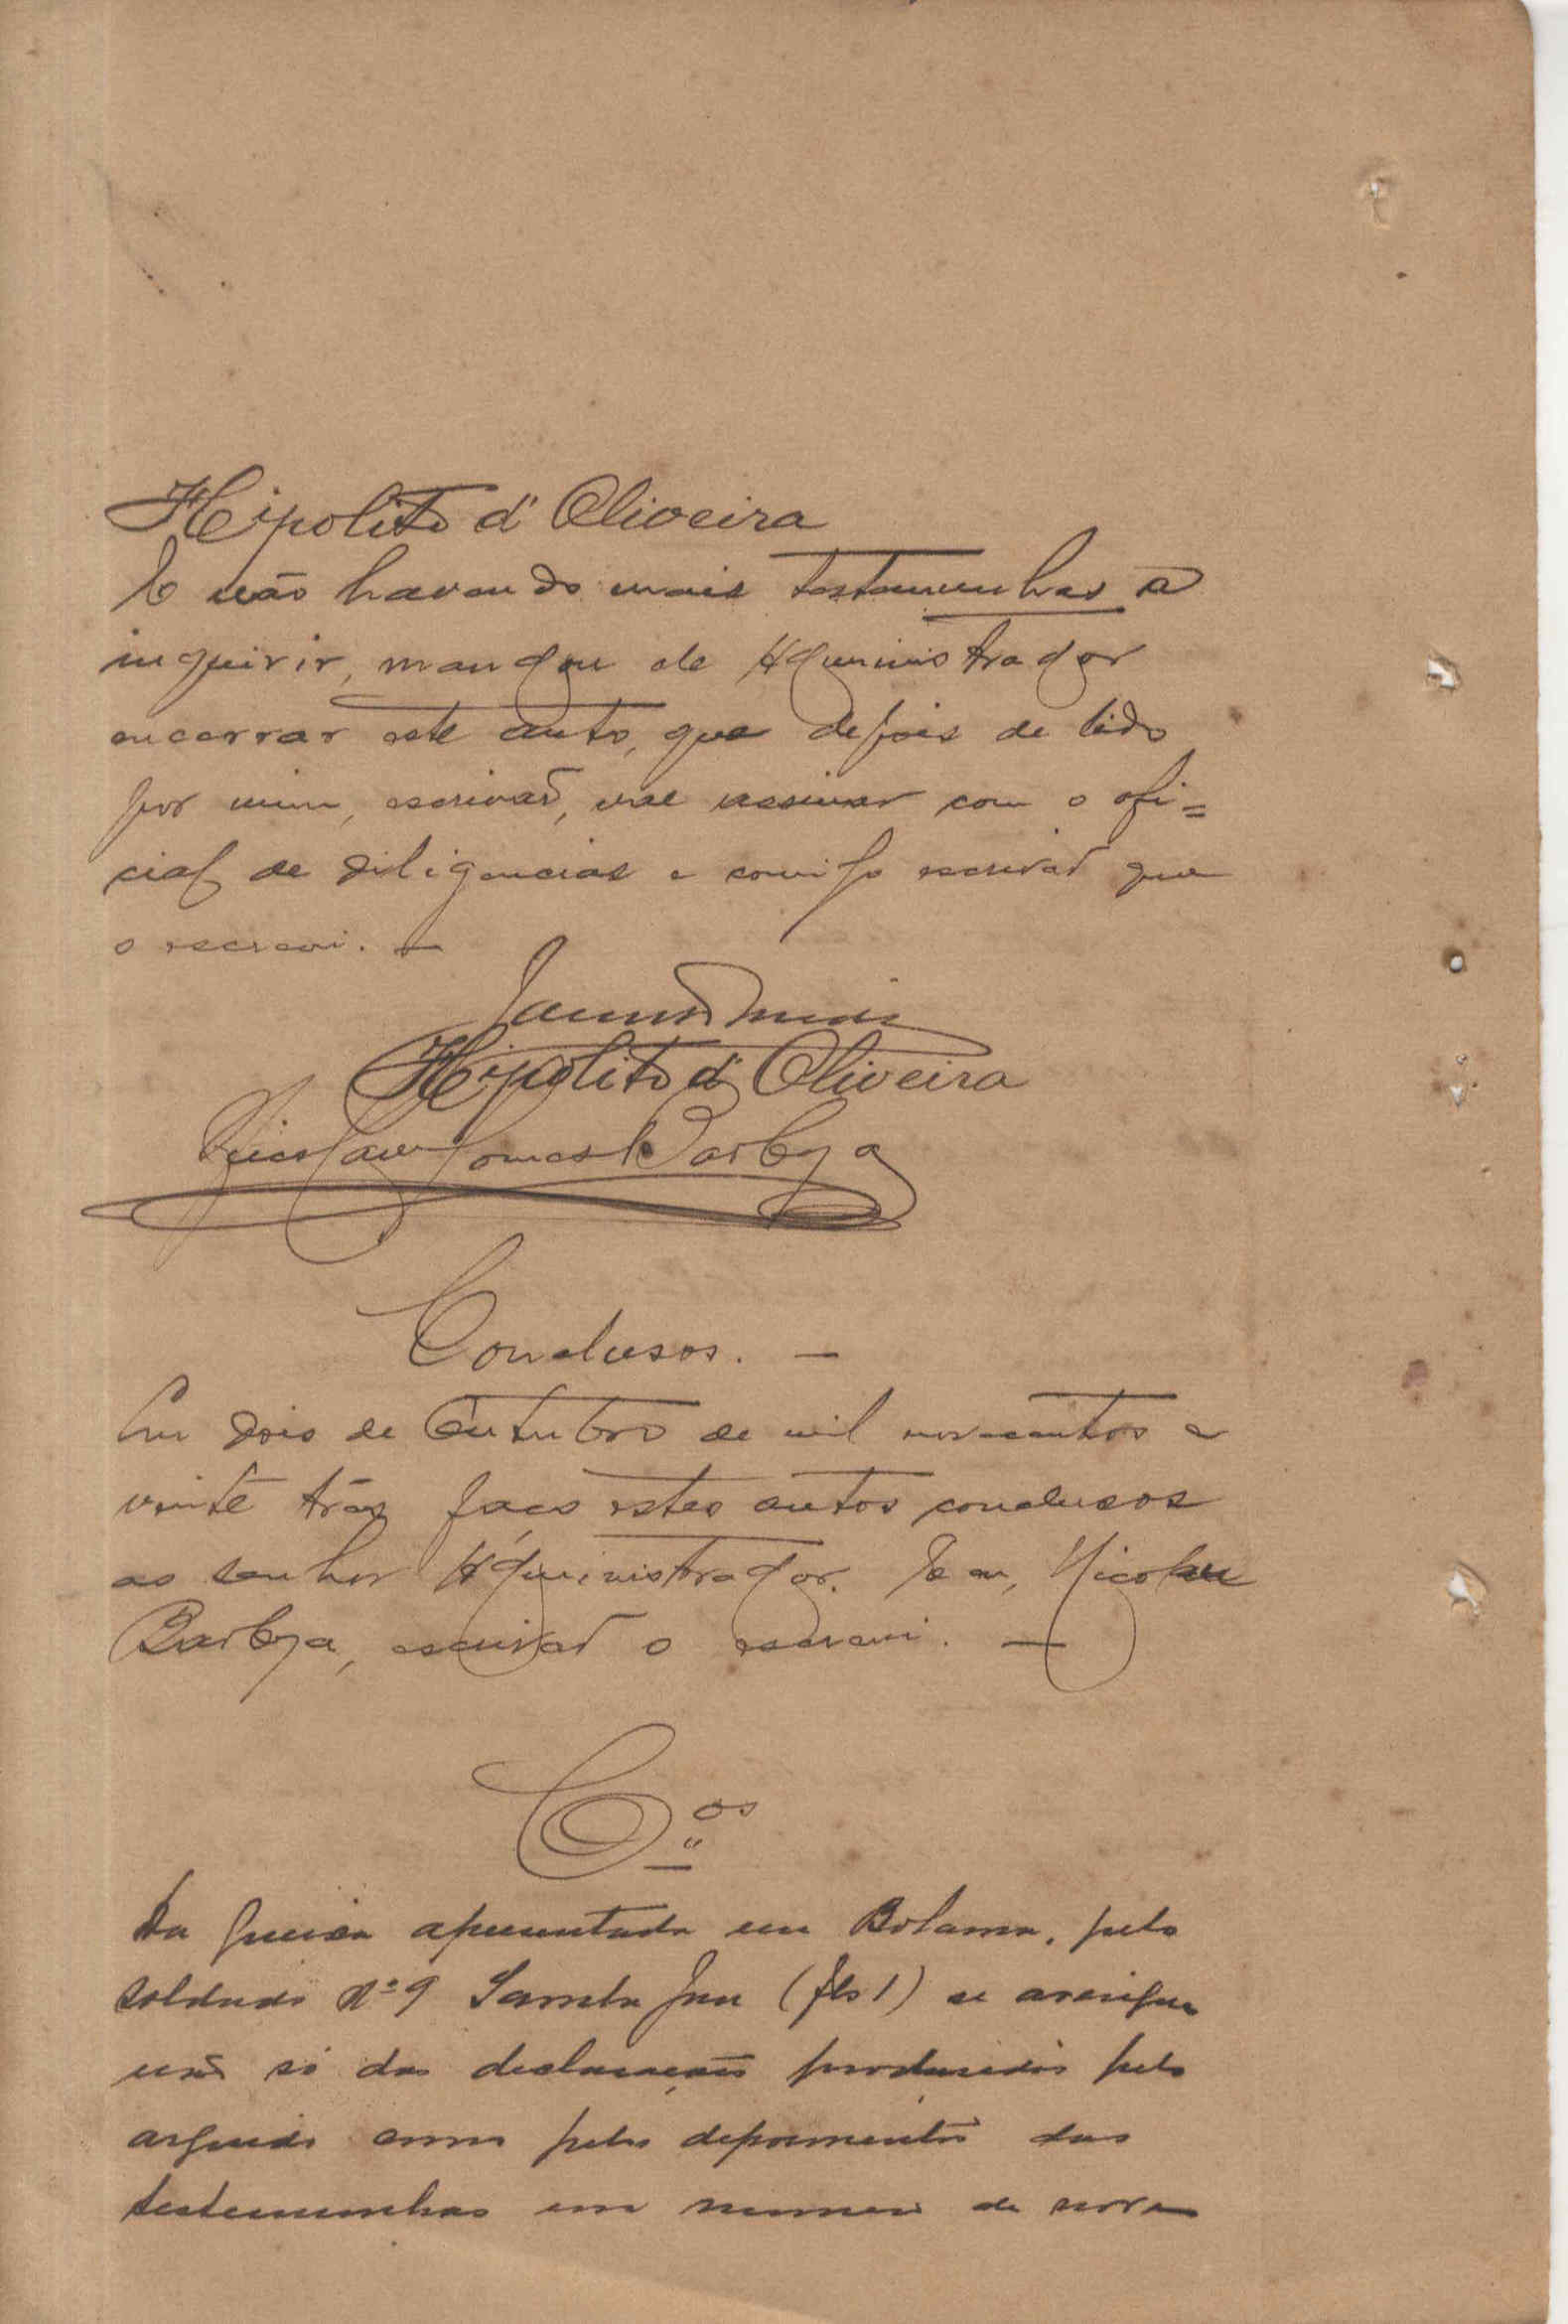 Hipolito d'Oliveira
E não havendo mais testemunhas a
inquirir, mandou ele Administrador
encerrar este auto, que depois de lido
por mim, escrivão, vae assinar com o ofi=
cial de diligencias e comigo escrivão que
o escrevi. —
Hipolito d'Oliveira
Nicolau Gomes Barboza
Conclusos. —
Em dois de Outubro de mil novecentos e
vinte três faço estes autos conclusos
ao senhor Administrador. E eu, Nicolau
Barboza, escrivão o escrevi. —
C.os
Da queixa apresentada em Bolama, pelo
soldado Nº 9 Samba (fls 1) se averigua
não só das declarações produzidas pelo
arguido como pelos depoimentos das
testemunhas em numero de nove